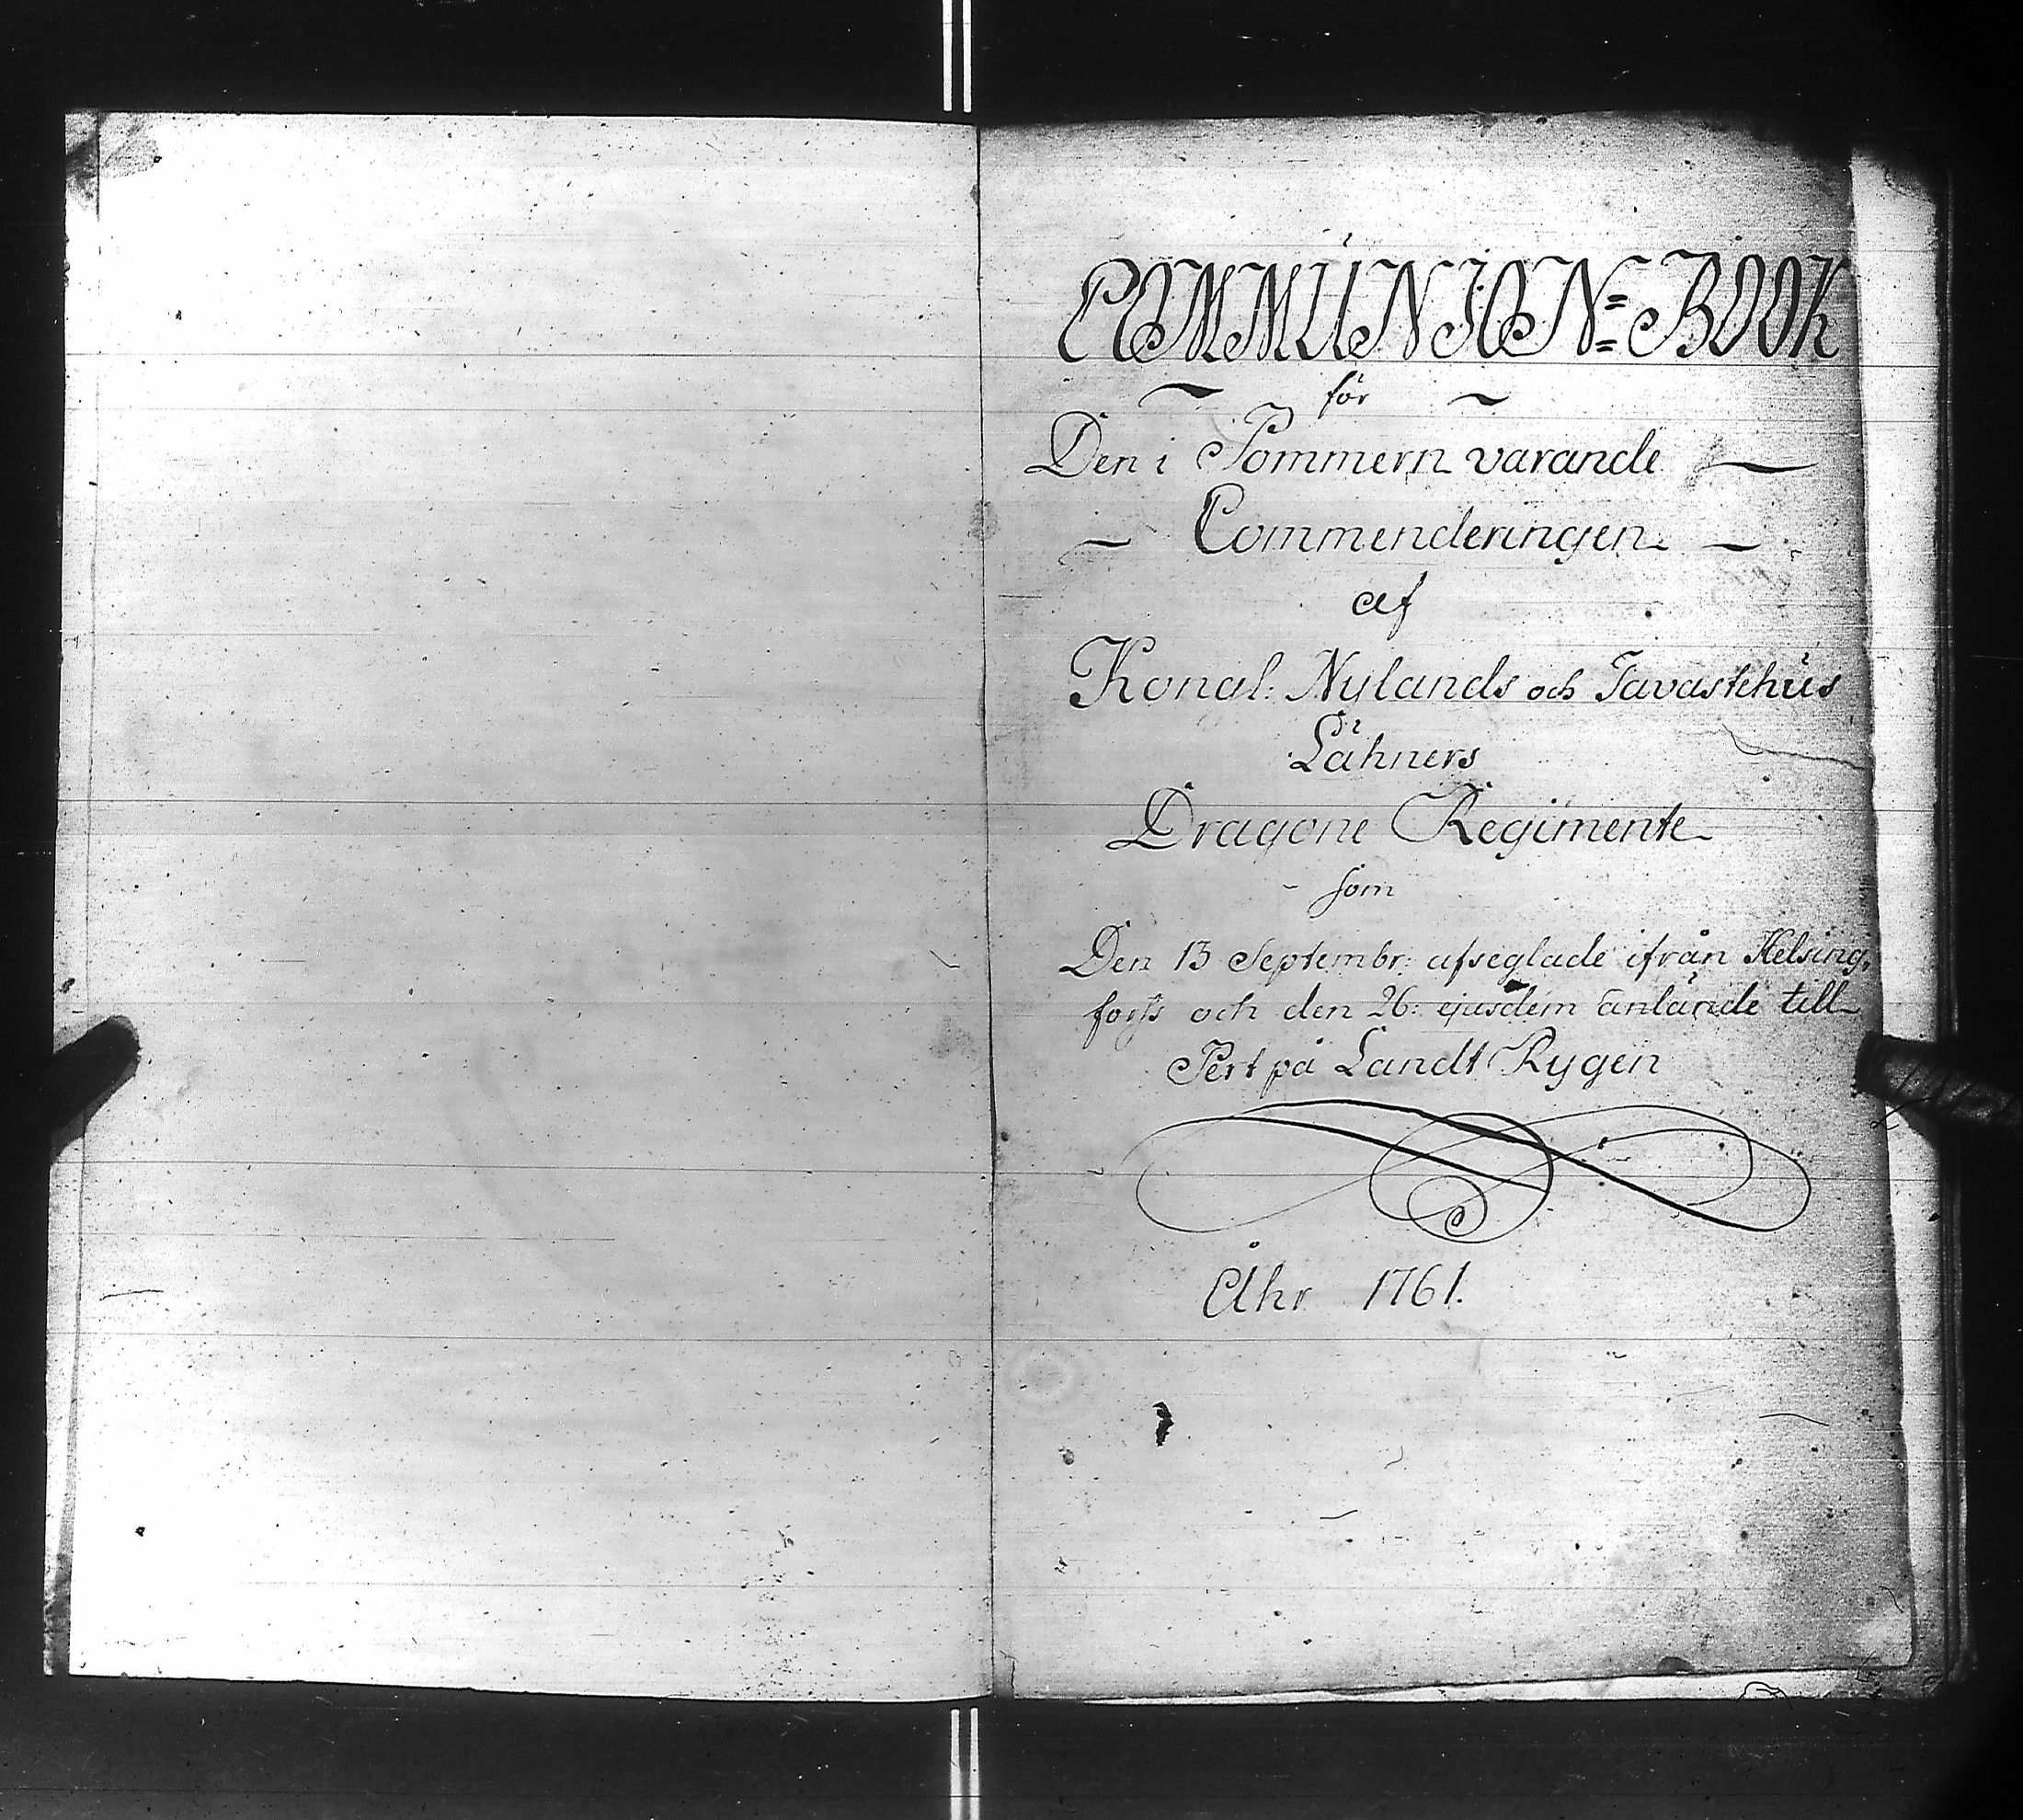 COMMUNION=BOOK
för
Den i Pommern varande
Commenderingen
af
Kongl: Nylands och Tavastehus
Lähners
Dragone Regimente
som
Den 13 Septembr: afseglade ifrån Helsing,
forss och den 26: ejusdem anlände till
Pert på Landt Rygen
Åhr 1761.